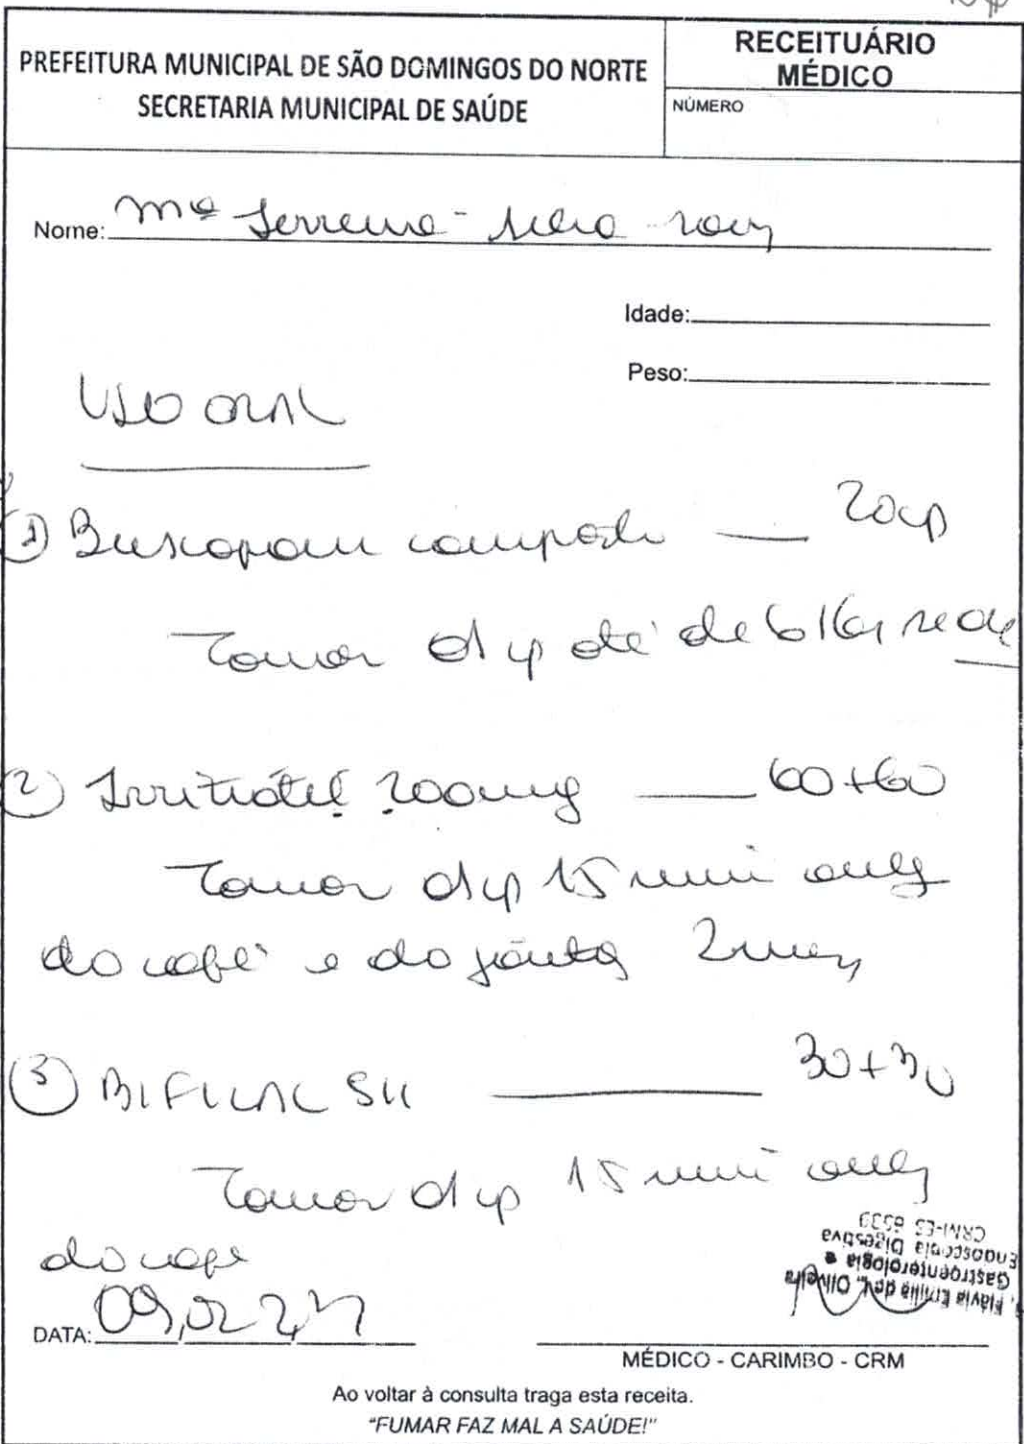 PREFEITURA MUNICIPAL DE SÃO DOMINGOS DO NORTE
SECRETARIA MUNICIPAL DE SAÚDE
RECEITUÁRIO
MÉDICO
NÚMERO
Nome: Mª
Idade:
Peso:
USO ORAL
1) Buscopan composto — 20cp
Tomar 01 cp até de 6/6h se
2) Irritratil 200mg — 60+60
Tomar 01 cp 15 min antes
do café e do jantar 2
3) BIFILAC SII — 30+30
Tomar 01 cp 15 min antes
do café
Flávia Emilia de Oliveira
Gastroenterologia e
Endoscopia Digestiva
CRM-ES
DATA: 09,02
MÉDICO - CARIMBO - CRM
Ao voltar à consulta traga esta receita.
"FUMAR FAZ MAL A SAÚDE!"